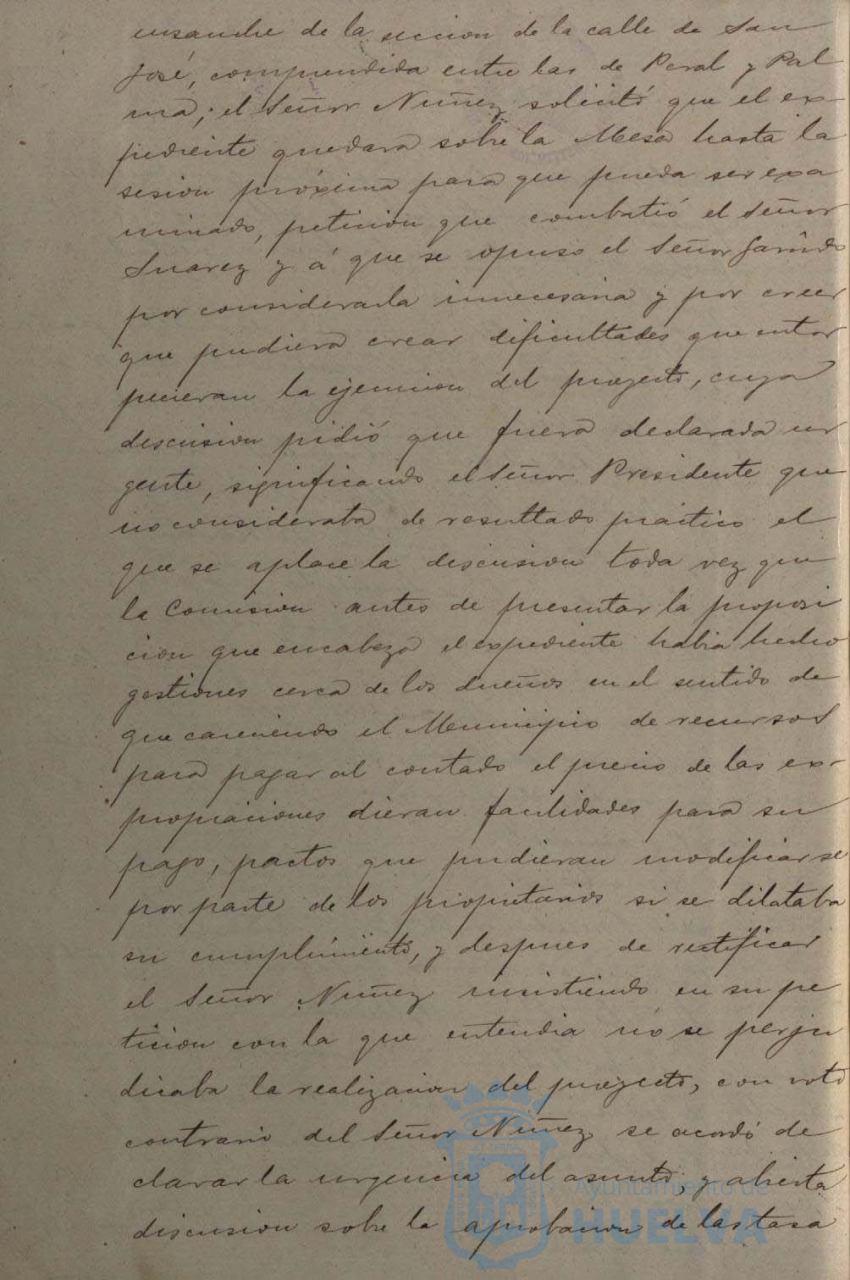 ensanche de la seccion de la calle de San
José, comprendida entre las de Peral y Pal
ma; el Señor Nuñez solicitó que el ex-
pediente quedara sobre la Mesa hasta la
sesion próxima para que pueda ser exa
minado, peticion que combatió el Señor
Suarez y á que se opuso el Señor Garrido
por considerarla innecesaria y por creer
que pudiera crear dificultades que entor
pecieran la ejecucion del proyecto, cuya
discusion pidió que fuera declarada ur
gente, significando el Señor Presidente que
no consideraba de resultado práctico el
que se aplace la discusion toda vez que
la Comision antes de presentar la proposi
cion que encabeza el expediente habia hecho
gestiones cerca de los dueños en el sentido de
que careciendo el Municipio de recursos
para pagar al contado el precio de las ex-
propiaciones dieran facilidades para su
pago, pactos que pudieran modificarse
por parte de los propietarios si se dilataba
su cumplimiento, y despues de rectificar
el Señor Nuñez insistiendo en su pe
ticion con la que entendia no se perju
dicaba la realizacion del proyecto, con voto
contrario del Señor Nuñez se acordó de
clarar la urgencia del asunto, y abierta
discusion sobre la aprobacion de las tasa
Ayuntamiento de
HUELVA